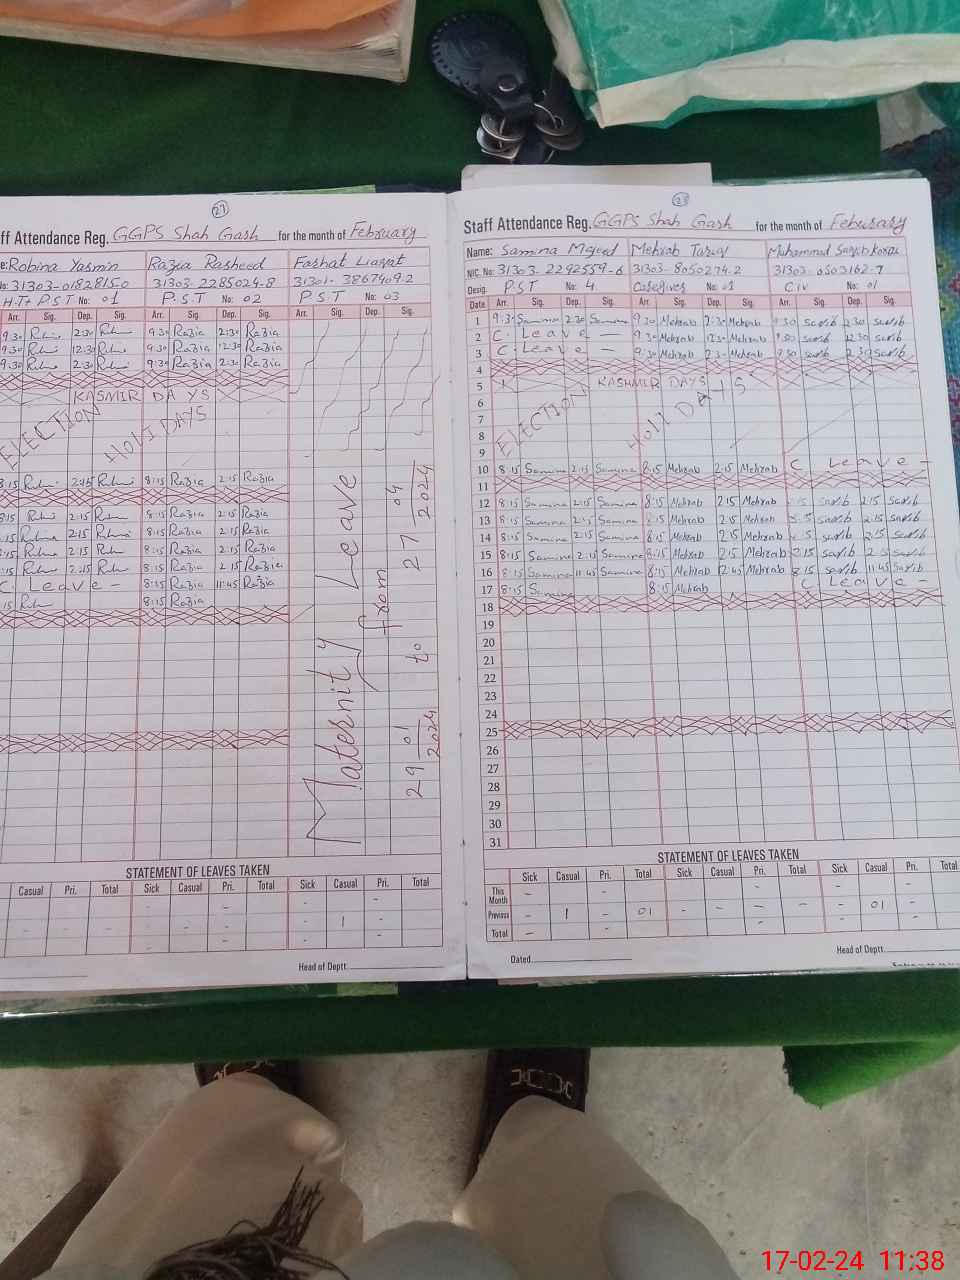 27
ff Attendance Reg. GGPS Shah Gash for the month of February
e: Robina Yasmin Razia Rasheed Farhat Liaqat
No: 31303-0182815-0 31303-2285024-8 31301-3867409-2
H.T+ P.S.T No: 01 P.S.T No: 02 P.S.T No: 03
Arr. Sig. Dep. Sig. Arr. Sig. Dep. Sig. Arr. Sig. Dep. Sig.
9:30 2:30 9:30 Razia 2:30 Razia
9:30 12:30 9:30 Razia 12:30 Razia
9:30 2:30 9:30 Razia 2:30 Razia
KASMIR DAYS
ELECTION HOLIDAYS
8:15 2:15 8:15 Razia 2:15 Razia
8:15 2:15 8:15 Razia 2:15 Razia
:15 2:15 8:15 Razia 2:15 Razia
:15 2:15 8:15 Razia 2:15 Razia
:15 2:15 8:15 Razia 2:15 Razia
C. Leave - 8:15 Razia 11:45 Razia
:15 8:15 Razia
Maternity Leave
from
29 01 2024 to 27 04 2024
STATEMENT OF LEAVES TAKEN
Casual Pri. Total Sick Casual Pri. Total Sick Casual Pri. Total
1
Head of Deptt.
28
Staff Attendance Reg. GGPS Shah Gash for the month of Feburary
Name: Samina Majeed Mehrab Muhammad
NIC. No: 31303-2292559-6 31303-8050274-2 31303-0503162-7
Desig. PST No: 4 Caregiver No: 01 Civ No: 01
Date Arr. Sig. Dep. Sig. Arr. Sig. Dep. Sig. Arr. Sig. Dep. Sig.
1 9:30 Samina 2:30 Samina 9:30 Mehrab 2:30 Mehrab 9:30 2:30
2 C. Leave - 9:30 Mehrab 12:30 Mehrab 9:30 12:30
3 C. Leave - 9:30 Mehrab 2:30 Mehrab 9:30 2:30
4
5 KASHMIR DAYS
6
7 ELECTION HOLIDAYS
8
9
10 8:15 Samina 2:15 Samina 8:15 Mehrab 2:15 Mehrab C. Leave -
11
12 8:15 Samina 2:15 Samina 8:15 Mehrab 2:15 Mehrab 2:15
13 8:15 Samina 2:15 Samina 8:15 Mehrab 2:15 Mehrab 2:15
14 8:15 Samina 2:15 Samina 8:15 Mehrab 2:15 Mehrab 2:15
15 8:15 Samina 2:15 Samina 8:15 Mehrab 2:15 Mehrab
16 8:15 Samina 11:45 Samina 8:15 Mehrab 12:45 Mehrab 8:15 11:45
17 8:15 Samina 8:15 Mehrab C. Leave -
18
19
20
21
22
23
24
25
26
27
28
29
30
31
STATEMENT OF LEAVES TAKEN
Sick Casual Pri. Total Sick Casual Pri. Total Sick Casual Pri. Total
This Month - -
Previous - 1 - 01 - - - - - 01 -
Total -
Dated Head of Deptt.
17-02-24 11:38